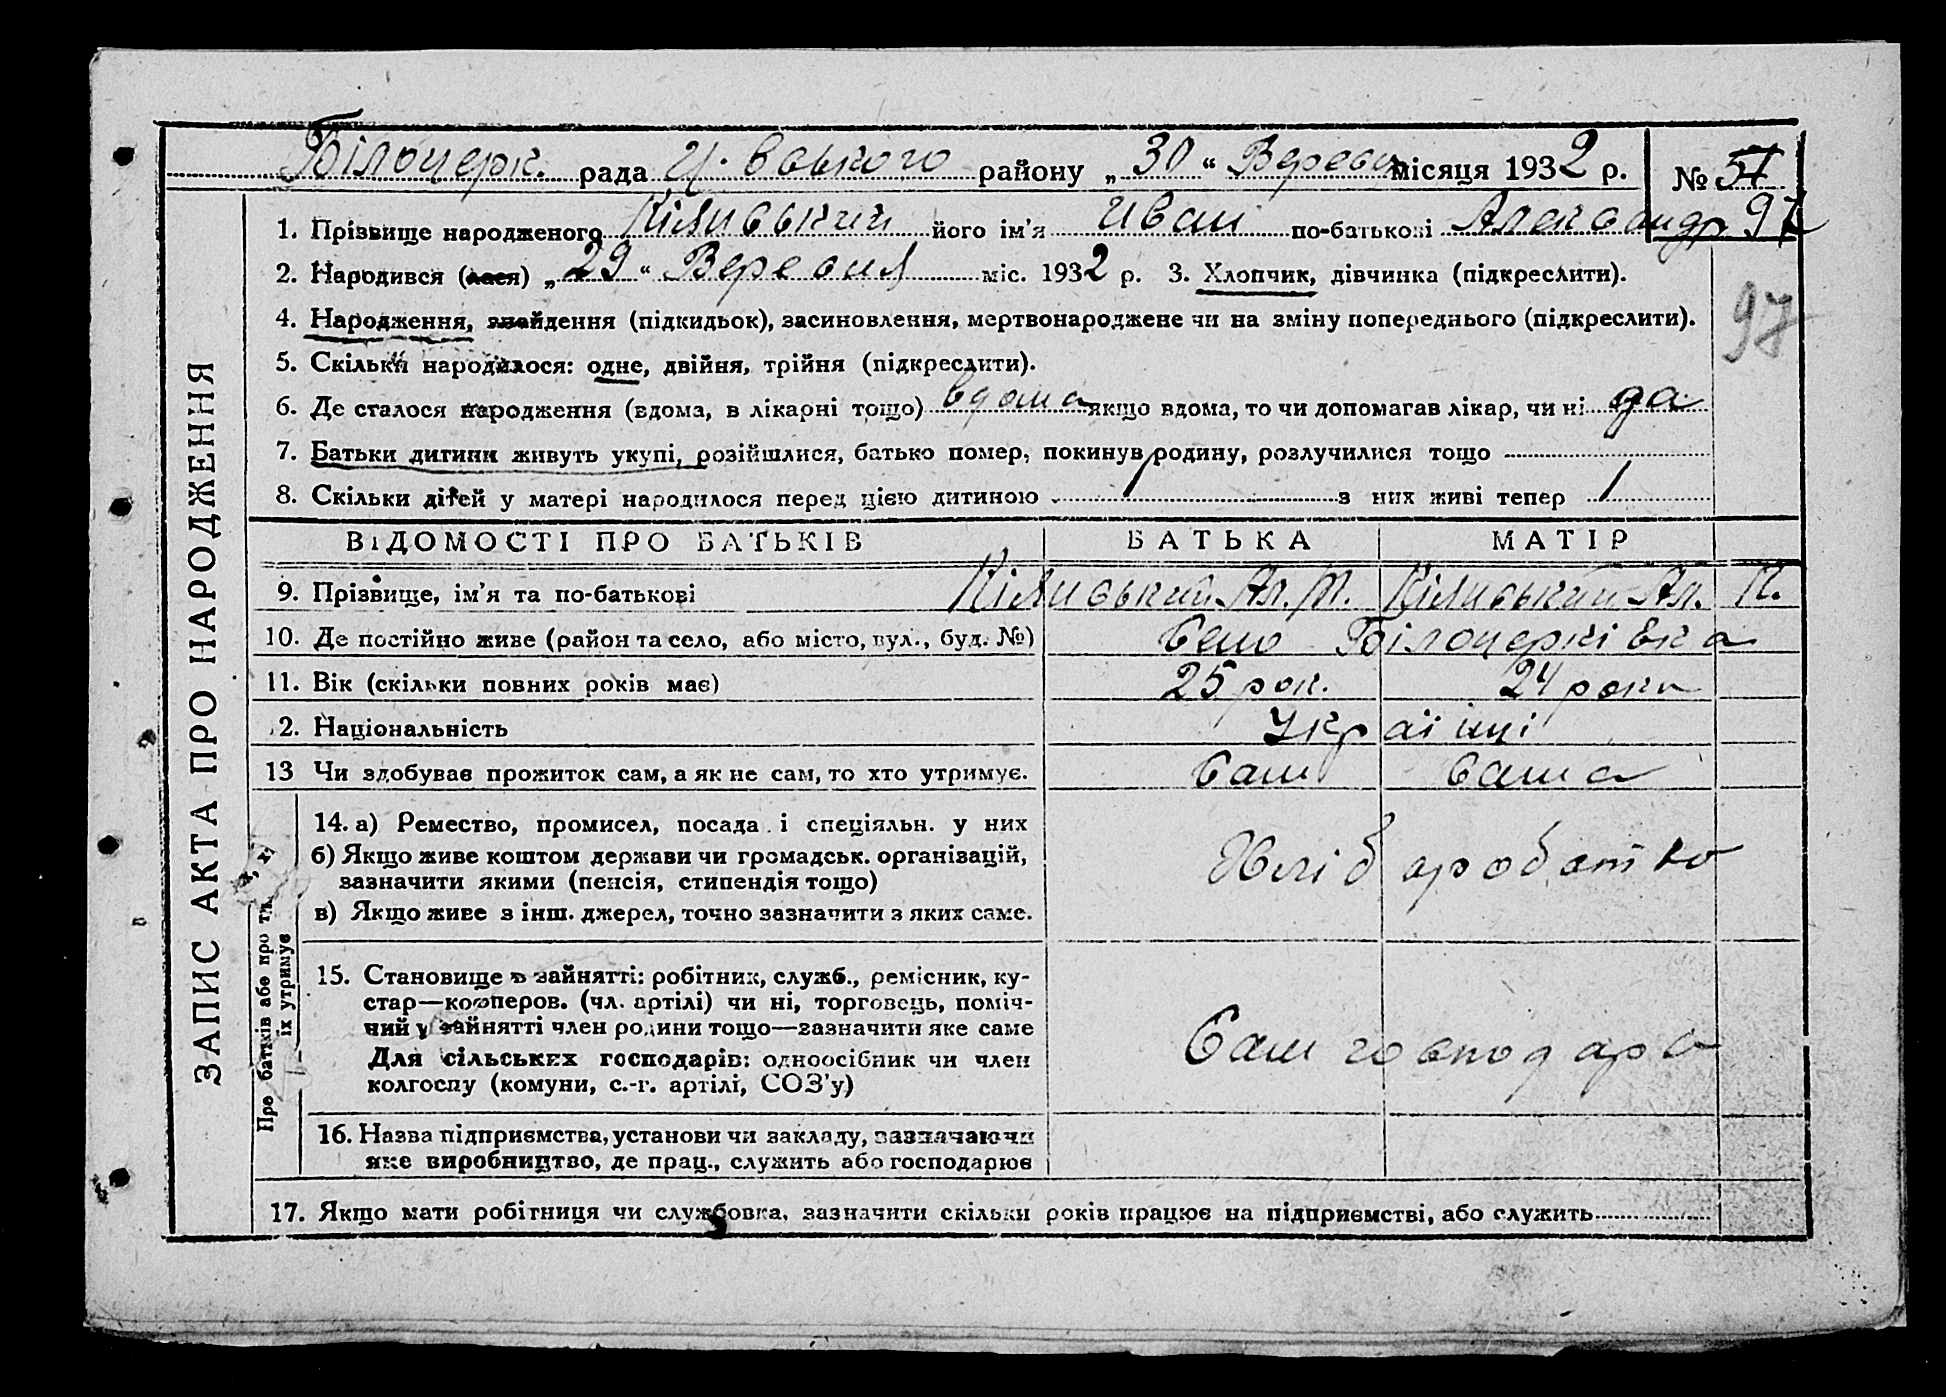 Білоцерк. рада ського району „30“ Вересн місяця 1932 р. № 57
97
1. Прізвище народженого Кілинський його ім'я Иван по-батькові Александр
2. Народився (лася) „29“ Вересня міс. 1932 р. 3. Хлопчик, дівчинка (підкреслити).
4. Народження, знайдення (підкидьок), засиновлення, мертвонароджене чи на зміну попереднього (підкреслити).
97
5. Скільки народилося: одне, двійня, трійня (підкреслити).
6. Де сталося народження (вдома, в лікарні тощо) вдома якщо вдома, то чи допомагав лікар, чи ні да
7. Батьки дитини живуть укупі, розійшлися, батько помер, покинув родину, розлучилися тощо
8. Скільки дітей у матері народилося перед цією дитиною 1 з них живі тепер 1
ЗАПИС АКТА ПРО НАРОДЖЕННЯ
ВІДОМОСТІ ПРО БАТЬКІВ БАТЬКА МАТІР
9. Прізвище, ім'я та по-батькові Кілинський Ал. Кілинський Ал. П.
10. Де постійно живе (район та село, або місто, вул., буд. №) Село Білоцерківка
11. Вік (скільки повних років має) 25 рок. 24 роки
2. Національність Українці
13 Чи здобував прожиток сам, а як не сам, то хто утримує. Сам Сама
Про батьків або про тих, х
їх утримує
14. а) Ремество, промисел, посада і спеціяльн. у них
б) Якщо живе коштом держави чи громадськ. організацій,
зазначити якими (пенсія, стипендія тощо)
в) Якщо живе з інш. джерел, точно зазначити з яких саме.
15. Становище в зайнятті: робітник, служб., ремісник, ку-
стар—кооперов. (чл. артілі) чи ні, торговець, поміч-
чий у зайнятті член родини тощо—зазначити яке саме
Для сільських господарів: одноосібник чи член
колгоспу (комуни, с.-г. артілі, СОЗ'у)
Сам господарь
16. Назва підприємства, установи чи закладу, зазначаючи
яке виробництво, де прац., служить або господарює
17. Якщо мати робітниця чи службовка, зазначити скільки років працює на підприємстві, або служить